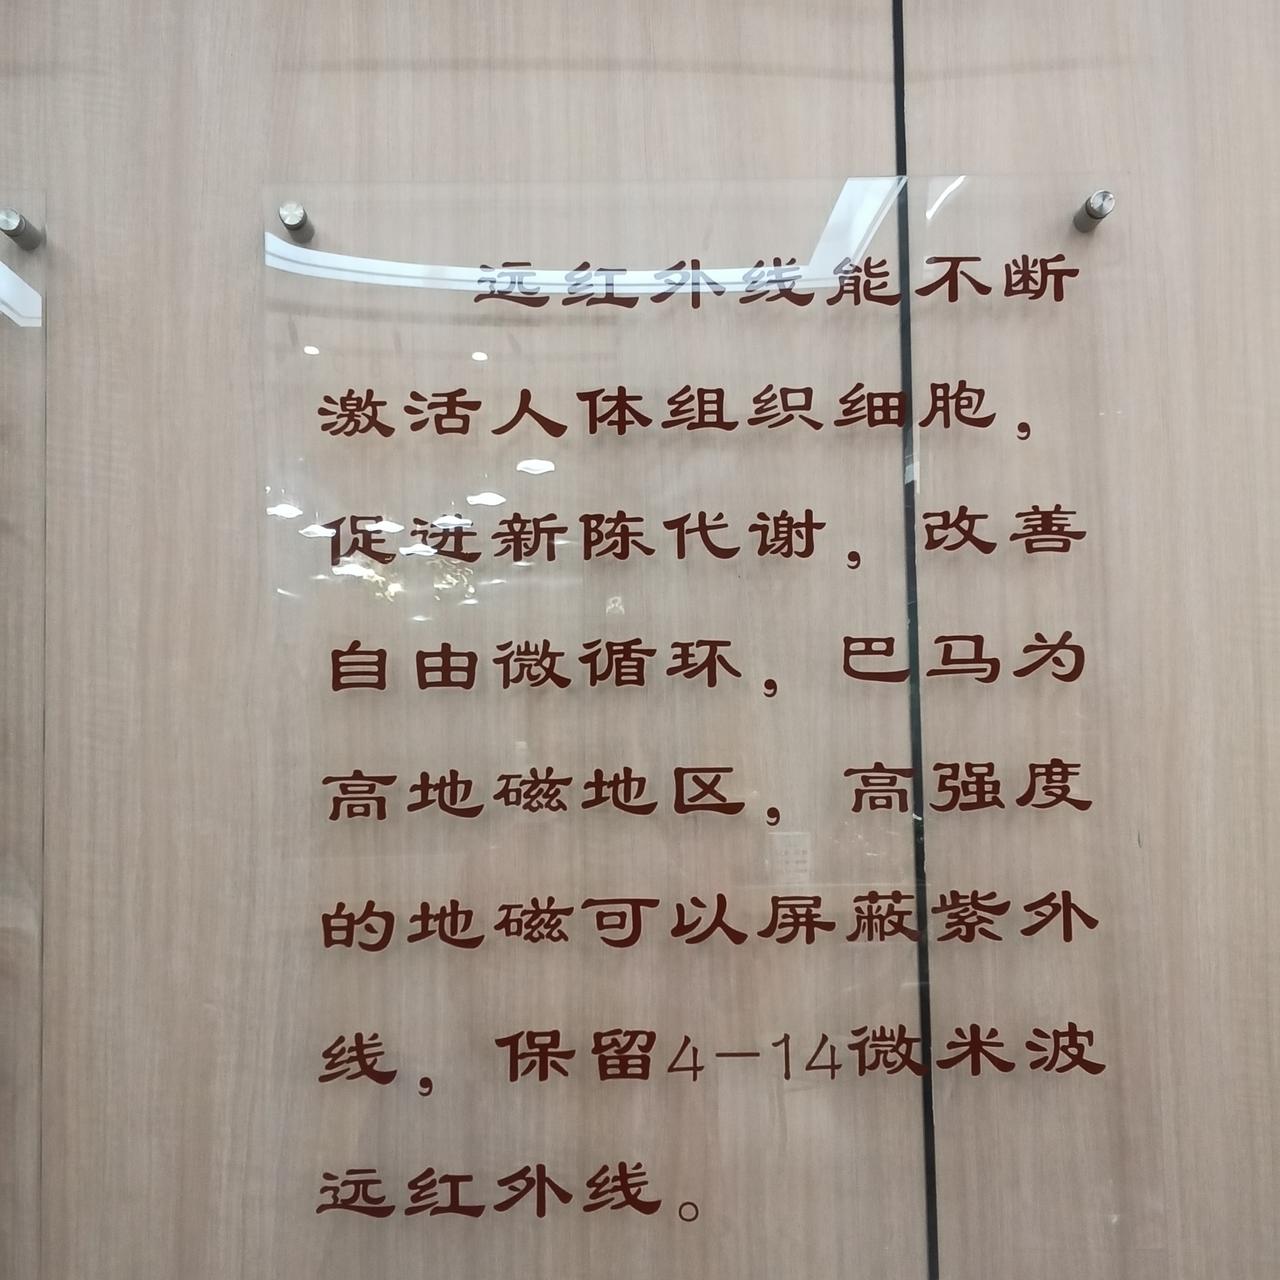 远红外线能不断
激活人体组织细胞，
促进新陈代谢，改善
自由微循环，巴马为
高地磁地区，高强度
的地磁可以屏蔽紫外
线，保留4-14微米波
远红外线。